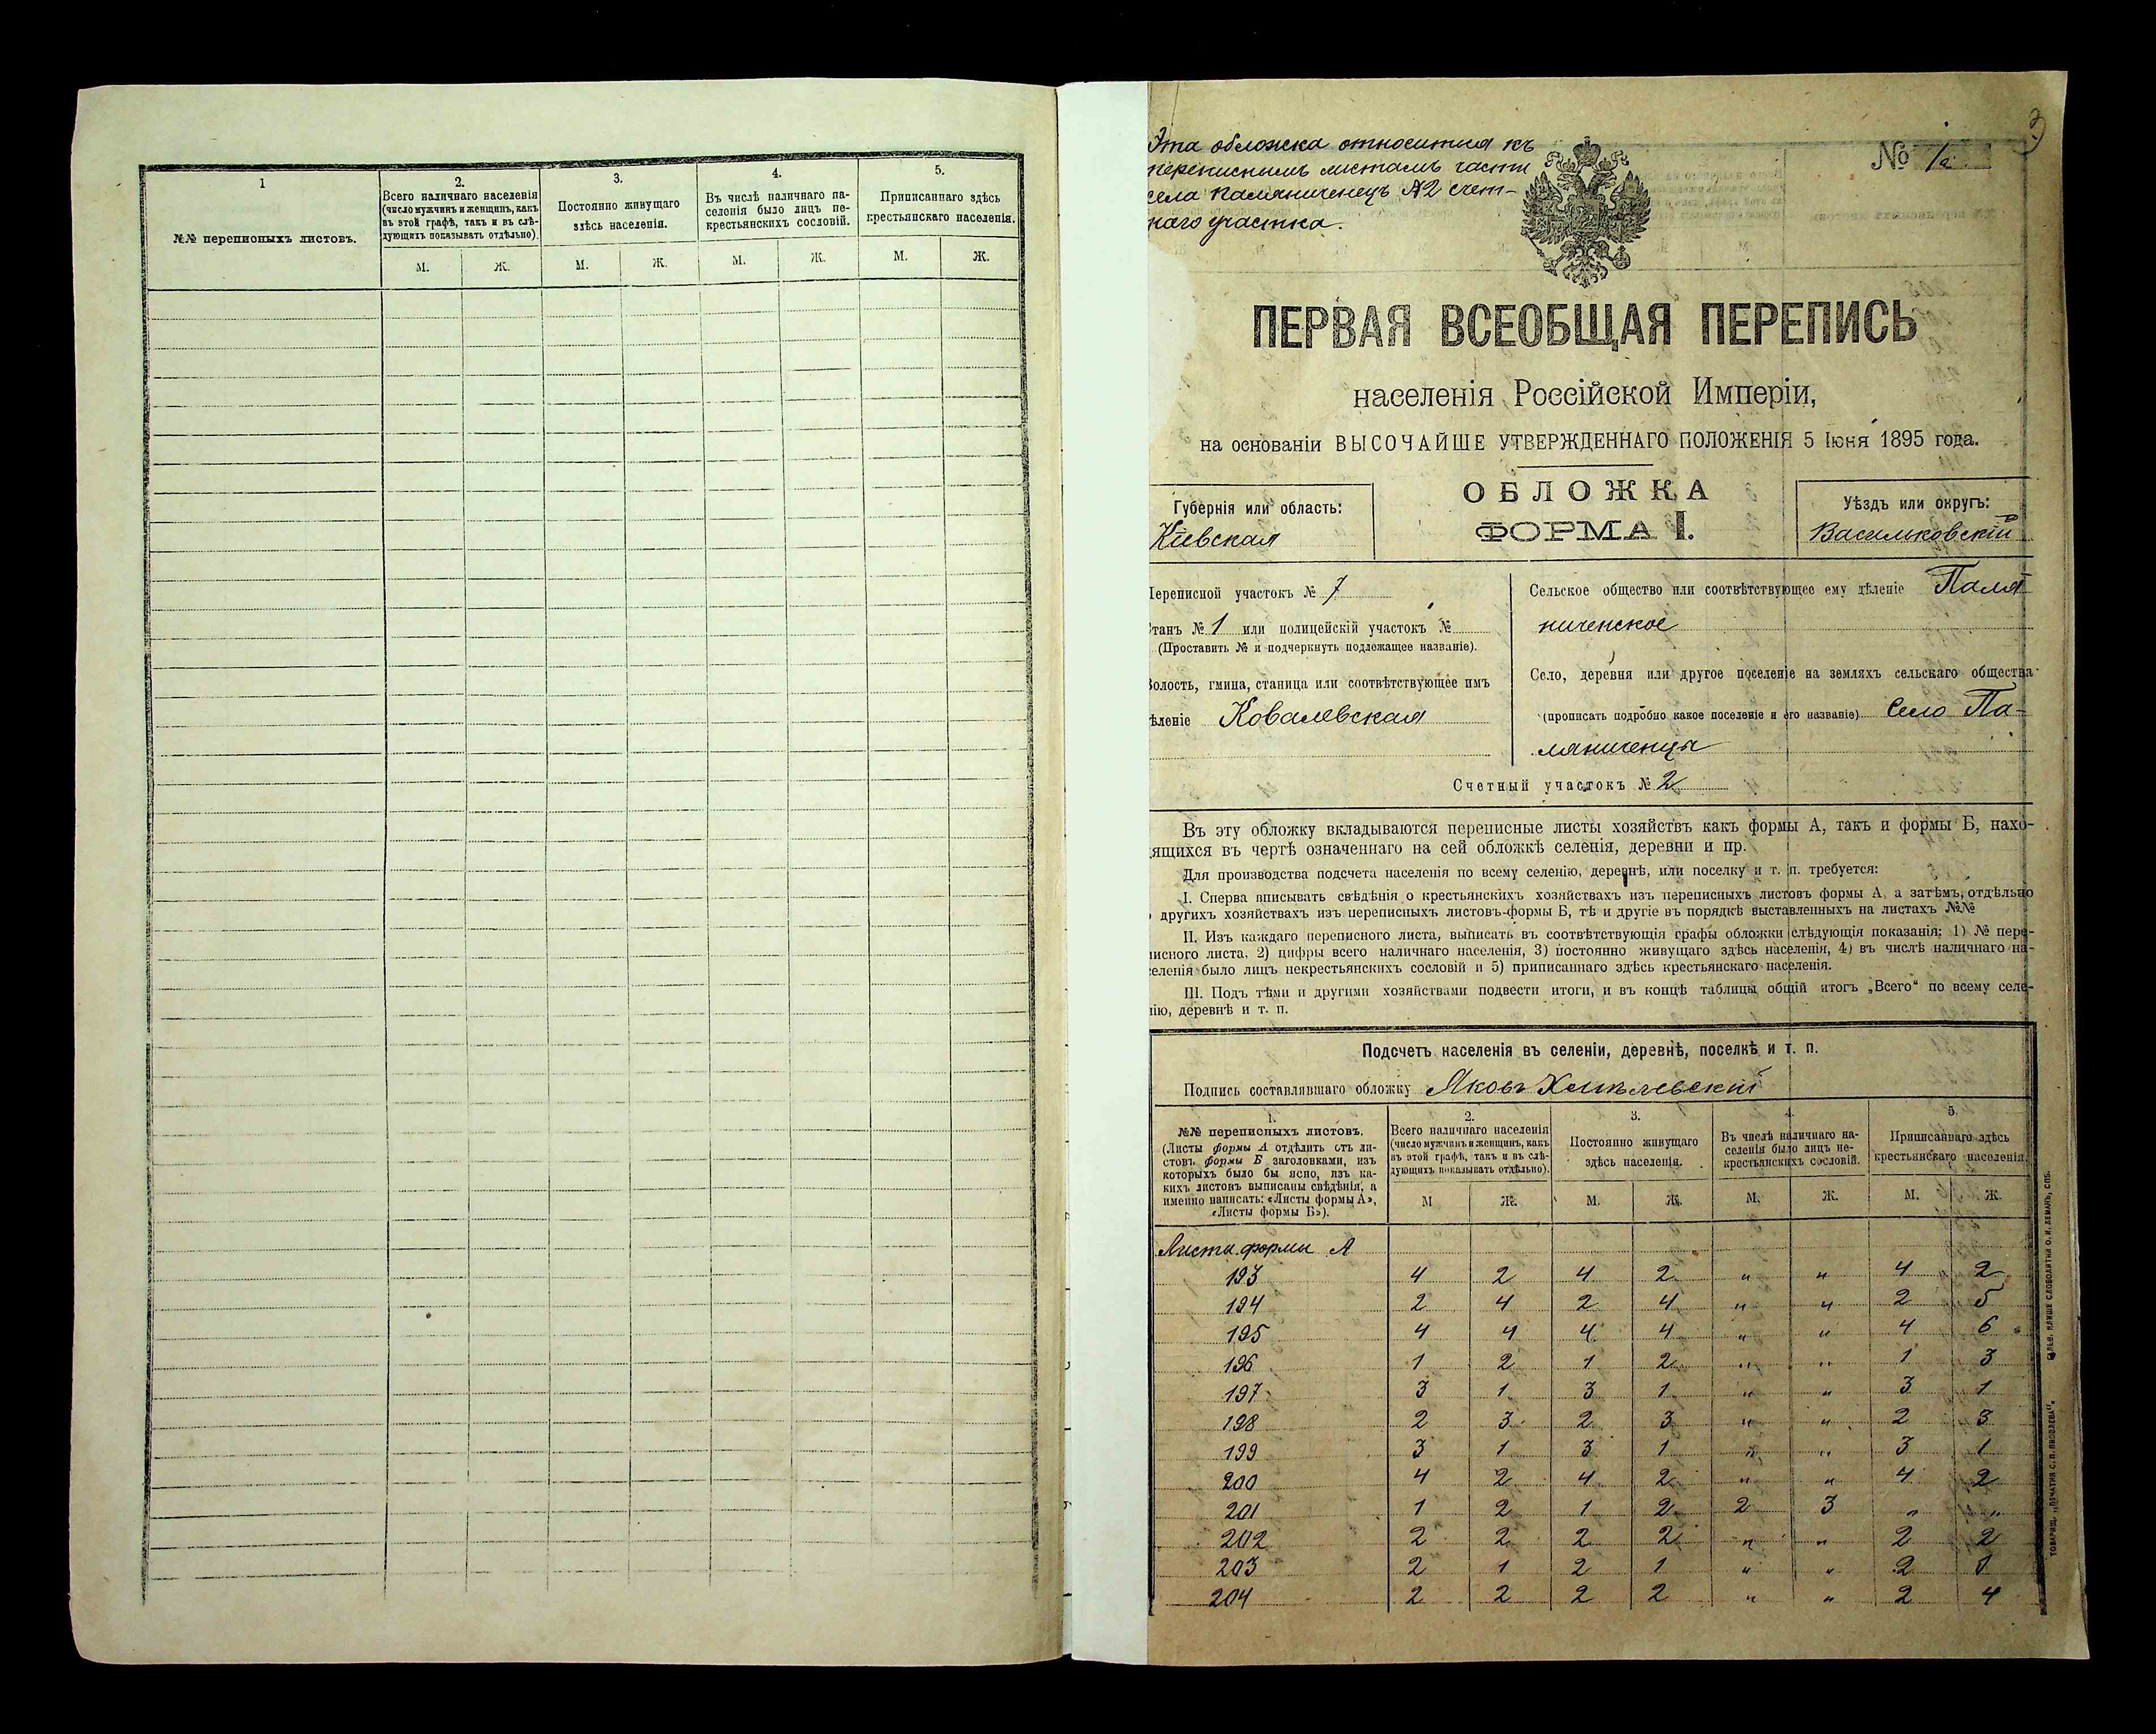 1
2.
3.
4.
5.
№№ переписныхъ листовъ.
Всего наличнаго населенія
(число мужчинъ и женщинъ, какъ
въ этой графѣ, такъ и въ слѣ-
дующихъ показывать отдѣльно).
Постоянно живущаго
здѣсь населенія.
Въ числѣ наличнаго на-
селенія было лицъ не-
крестьянскихъ сословій.
Приписаннаго здѣсь
крестьянскаго населенія.
М. Ж. М. Ж. М. Ж. М. Ж.
Эта обложка относится къ
переписнымъ листамъ части
села Паляниченецъ №2 счет-
наго участка.
№ 1а.
ПЕРВАЯ ВСЕОБЩАЯ ПЕРЕПИСЬ
населенія Россійской Имперіи,
на основаніи ВЫСОЧАЙШЕ УТВЕРЖДЕННАГО ПОЛОЖЕНІЯ 5 Іюня 1895 года.
ОБЛОЖКА
ФОРМА I.
Губернія или область:
Кіевская
Уѣздъ или округъ:
Васильковскій
Переписной участокъ № 7
Станъ № 1 или полицейскій участокъ №
(Проставить № и подчеркнуть подлежащее названіе).
Волость, гмина, станица или соотвѣтствующее имъ
дѣленіе Ковалевская
Сельское общество или соотвѣтствующее ему дѣленіе Паля-
ниченское
Село, деревня или другое поселеніе на земляхъ сельскаго общества
(прописать подробно какое поселеніе и его названіе) Село Па-
ляниченцы
Счетный участокъ № 2
Въ эту обложку вкладываются переписные листы хозяйствъ какъ формы А, такъ и формы Б, нахо-
дящихся въ чертѣ означеннаго на сей обложкѣ селенія, деревни и пр.
Для производства подсчета населенія по всему селенію, деревнѣ, или поселку и т. п. требуется:
I. Сперва вписывать свѣдѣнія о крестьянскихъ хозяйствахъ изъ переписныхъ листовъ формы А, а затѣмъ, отдѣльно
о другихъ хозяйствахъ изъ переписныхъ листовъ-формы Б, тѣ и другіе въ порядкѣ выставленныхъ на листахъ №№
II. Изъ каждаго переписного листа, выписать въ соотвѣтствующія графы обложки слѣдующія показанія: 1) № пере-
писного листа, 2) цифры всего наличнаго населенія, 3) постоянно живущаго здѣсь населенія, 4) въ числѣ наличнаго на-
селенія было лицъ некрестьянскихъ сословій и 5) приписаннаго здѣсь крестьянскаго населенія.
III. Подъ тѣми и другими хозяйствами подвести итоги, и въ концѣ таблицы общій итогъ „Всего“ по всему селе-
нію, деревнѣ и т. п.
Подсчетъ населенія въ селеніи, деревнѣ, поселкѣ и т. п.
Подпись составлявшаго обложку Яковъ Хмѣлевскій
1. 2. 3. 4. 5.
№№ переписныхъ листовъ.
(Листы формы А отдѣлить отъ ли-
стовъ формы Б заголовками, изъ
которыхъ было бы ясно, изъ ка-
кихъ листовъ выписаны свѣдѣнія, а
именно написать: «Листы формы А»,
«Листы формы Б»).
Всего наличнаго населенія
(число мужчинъ и женщинъ, какъ
въ этой графѣ, такъ и въ слѣ-
дующихъ показывать отдѣльно).
Постоянно живущаго
здѣсь населенія.
Въ числѣ наличнаго на-
селенія было лицъ не-
крестьянскихъ сословій.
Приписаннаго здѣсь
крестьянскаго населенія.
М Ж. М. Ж. М. Ж. М. Ж.
Листы формы А
193 4 2 4 2 " " 4 2
194 2 4 2 4 " " 2 5
195 4 4 4 4 " " 4 6
196 1 2 1 2 " " 1 3
197 3 1 3 1 " " 3 1
198 2 3 2 3 " " 2 3
199 3 1 3 1 " " 3 1
200 4 2 4 2 " " 4 2
201 1 2 1 2 2 3 " "
202 2 2 2 2 " " 2 2
203 2 1 2 1 " " 2 1
204 2 2 2 2 " " 2 4
ТОВАРИЩ. „ПЕЧАТНЯ С. П. ЯКОВЛЕВА“. ГАЛЬВ. КЛИШЕ СЛОВОЛИТНИ О. И. ЛЕМАНЪ, СПБ.